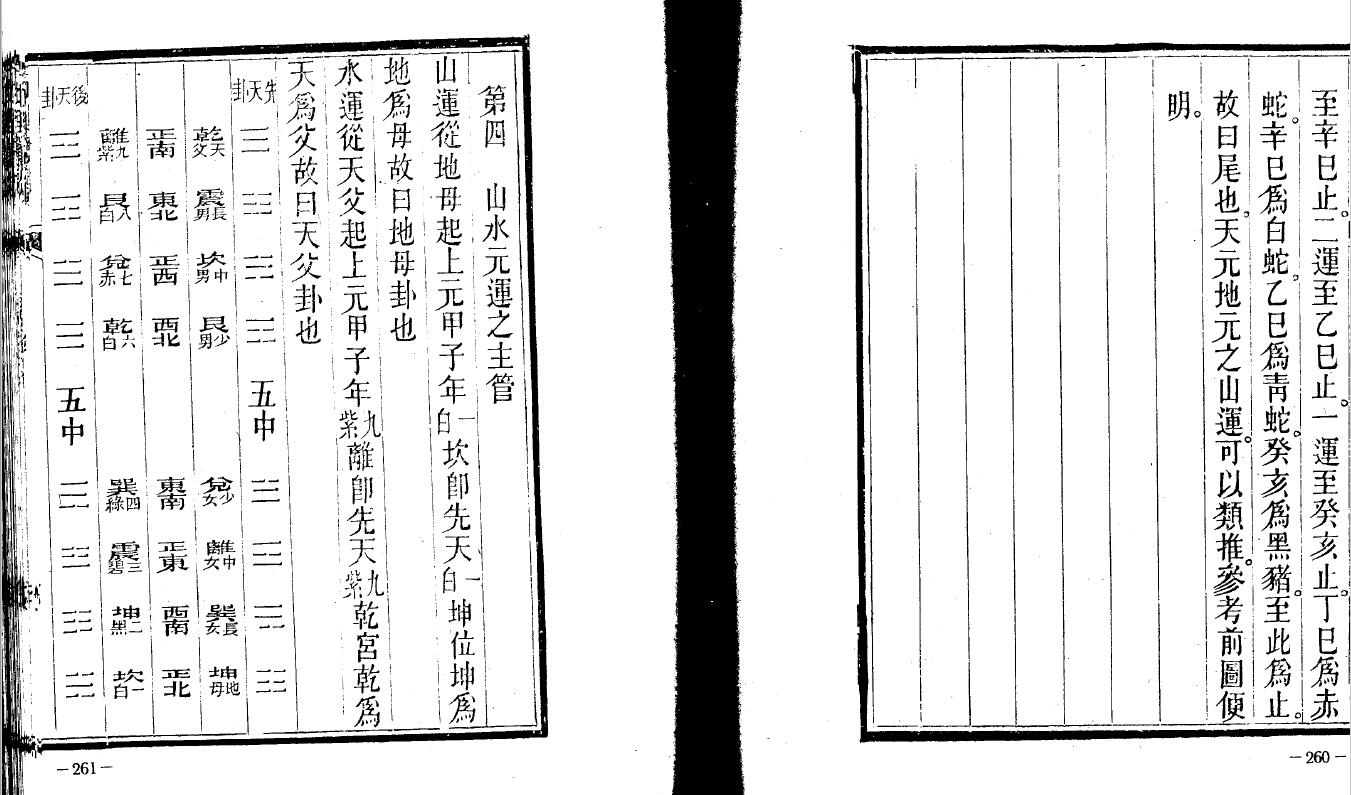 至辛巳止。二運至乙巳止。一運至癸亥止。丁巳爲赤
蛇。辛巳爲白蛇。乙巳爲靑蛇。癸亥爲黑豬。至此爲止。
故曰尾也。天元地元之山運。可以類推。參考前圖便
明。
—260—
第四　山水元運之主管
山運從地母起上元甲子年一白坎卽先天一白坤位坤爲
地爲母故曰地母卦也
水運從天父起上元甲子年九紫離卽先天九紫乾宮乾爲
天爲父故曰天父卦也
先天卦 ☰ ☳ ☵ ☶ 五中 ☱ ☲ ☴ ☷
乾天父 震長男 坎中男 艮少男 兌少女 離中女 巽長女 坤地母
正南 東北 正西 西北 東南 正東 西南 正北
離九紫 艮八白 兌七赤 乾六白 巽四綠 震三碧 坤二黑 坎一白
後天卦 ☲ ☶ ☱ ☰ 五中 ☴ ☳ ☷ ☵
—261—